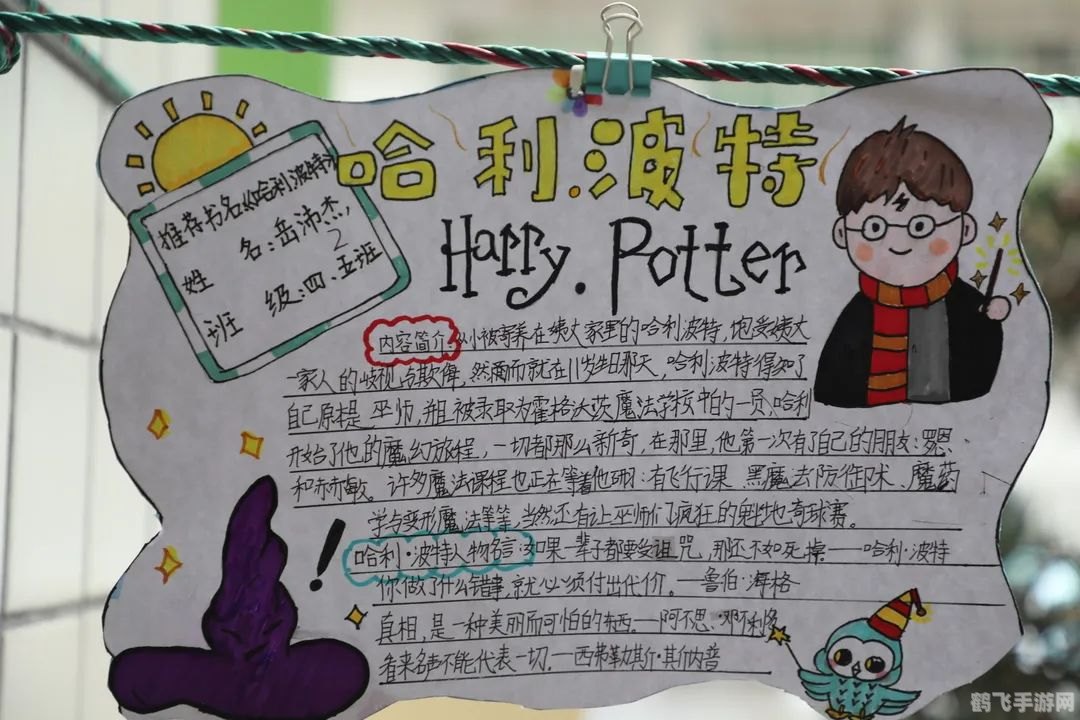 哈利.波特
Harry.Potter
推荐书名《哈利波特》
姓 名:岳沛杰
2
班 级:四.五班
内容简介:从小被寄养在姨夫家里的哈利波特,饱受姨夫
一家人的歧视与欺侮,然而就在11岁生日那天,哈利波特得知了
自己原来是巫师,并且被录取为霍格沃茨魔法学校中的一员、哈利
开始了他的魔幻旅程,一切都那么新奇,在那里,他第一次有了自己的朋友:罗恩、
和赫敏。许多魔法课程也正在等着他们:有飞行课、黑魔法防御术、魔药
学与变形魔法等等,当然还有让巫师们疯狂的魁地奇球赛。
哈利·波特人物名言:如果一辈子都要受诅咒,那还不如死掉——哈利·波特
你做了什么错事,就必须付出代价。—鲁伯·海格
真相,是一种美丽而可怕的东西。—阿不思·邓不利多
看来名声不能代表一切.—西弗勒斯·斯内普
鹤飞手游网